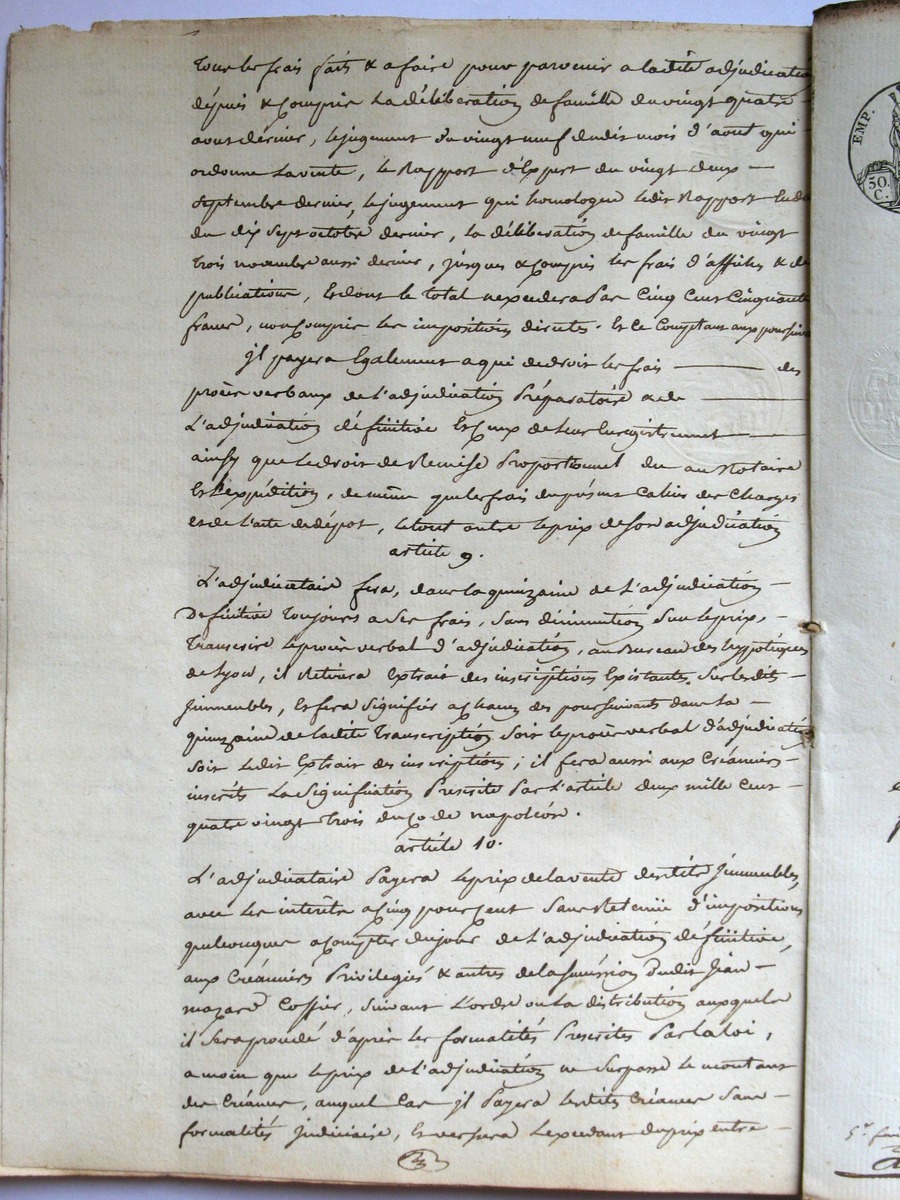 tous les frais faits & a faire pour parvenir a ladite adjudication
dépuis & compris La déliberation de famille du vingt quatre
aout dérnier, le jugement du vingt neuf dudit mois d'aout qui
ordonne La vente, le Rapport d'Expert du vingt deux
Septembre dernier, le jugement qui homologue ledit Rapport
du dix Sept octobre dernier, La déliberation de famille du vingt
trois novembre aussi dernier, jusques & compris les frais d'affiches & de
publications, Et dont le total n'excedera Pas Cinq Cent Cinquante
francs, non compris les impositions directes. Et ce Comptant aux poursuiva
jl payera Egalement a qui de droit les frais des
procès verbaux de L'adjudication Préparatoire & de
L'adjudication définitive Et Ceux de Leur Enregistrement
ainsy que Le droit de Remise Proportionnel du au Notaire
Et L'expédition, de même que les frais du présent Cahier des Charges
et de L'acte de dépot, Le tout outre Le prix de Son adjudication
article 9.
L'adjudicataire fera, dans La quinzaine de L'adjudication
Définitive toujours a Ses frais, Sans diminution Sur le prix,
transcrire Le procès verbal d'adjudication, au Bureau des hypotèques
de Lyon, il Retirera Extrait des inscriptions Existantes Sur Lesdits
jmmeubles, Et fera Signifier a chacun des poursuivants dans La
quinzaine de Ladite transcription Soit Le procès verbal d'adjudication
Soit Ledit Extrait des inscriptions; il fera aussi aux Créanciers
inscrits La Signification Prescrite Par L'article deux mille Cent
quatre vingt trois du Code napoléon.
article 10.
L'adjudicataire Payera Le prix de la vente desdits jmmeubles,
avec Les interêts a Cinq pour Cent Sans Retenüe d'impositions
quelconques a Compter du jour de L'adjudication définitive,
aux Créanciers Privilegiés & autres de la Succession dudit jean
mazard Cossier, Suivant L'ordre ou La distribution auxquels
il Sera procédé d'après Les formalités Prescrites Par la Loi,
a moin que Le prix de L'adjudication ne Surpasse Le montant
des Créances, auquel Cas jl Payera Lesdites Créances Sans
formalités judiciaire, Et versera L'excedant du prix entre
EMP.
50.
C.